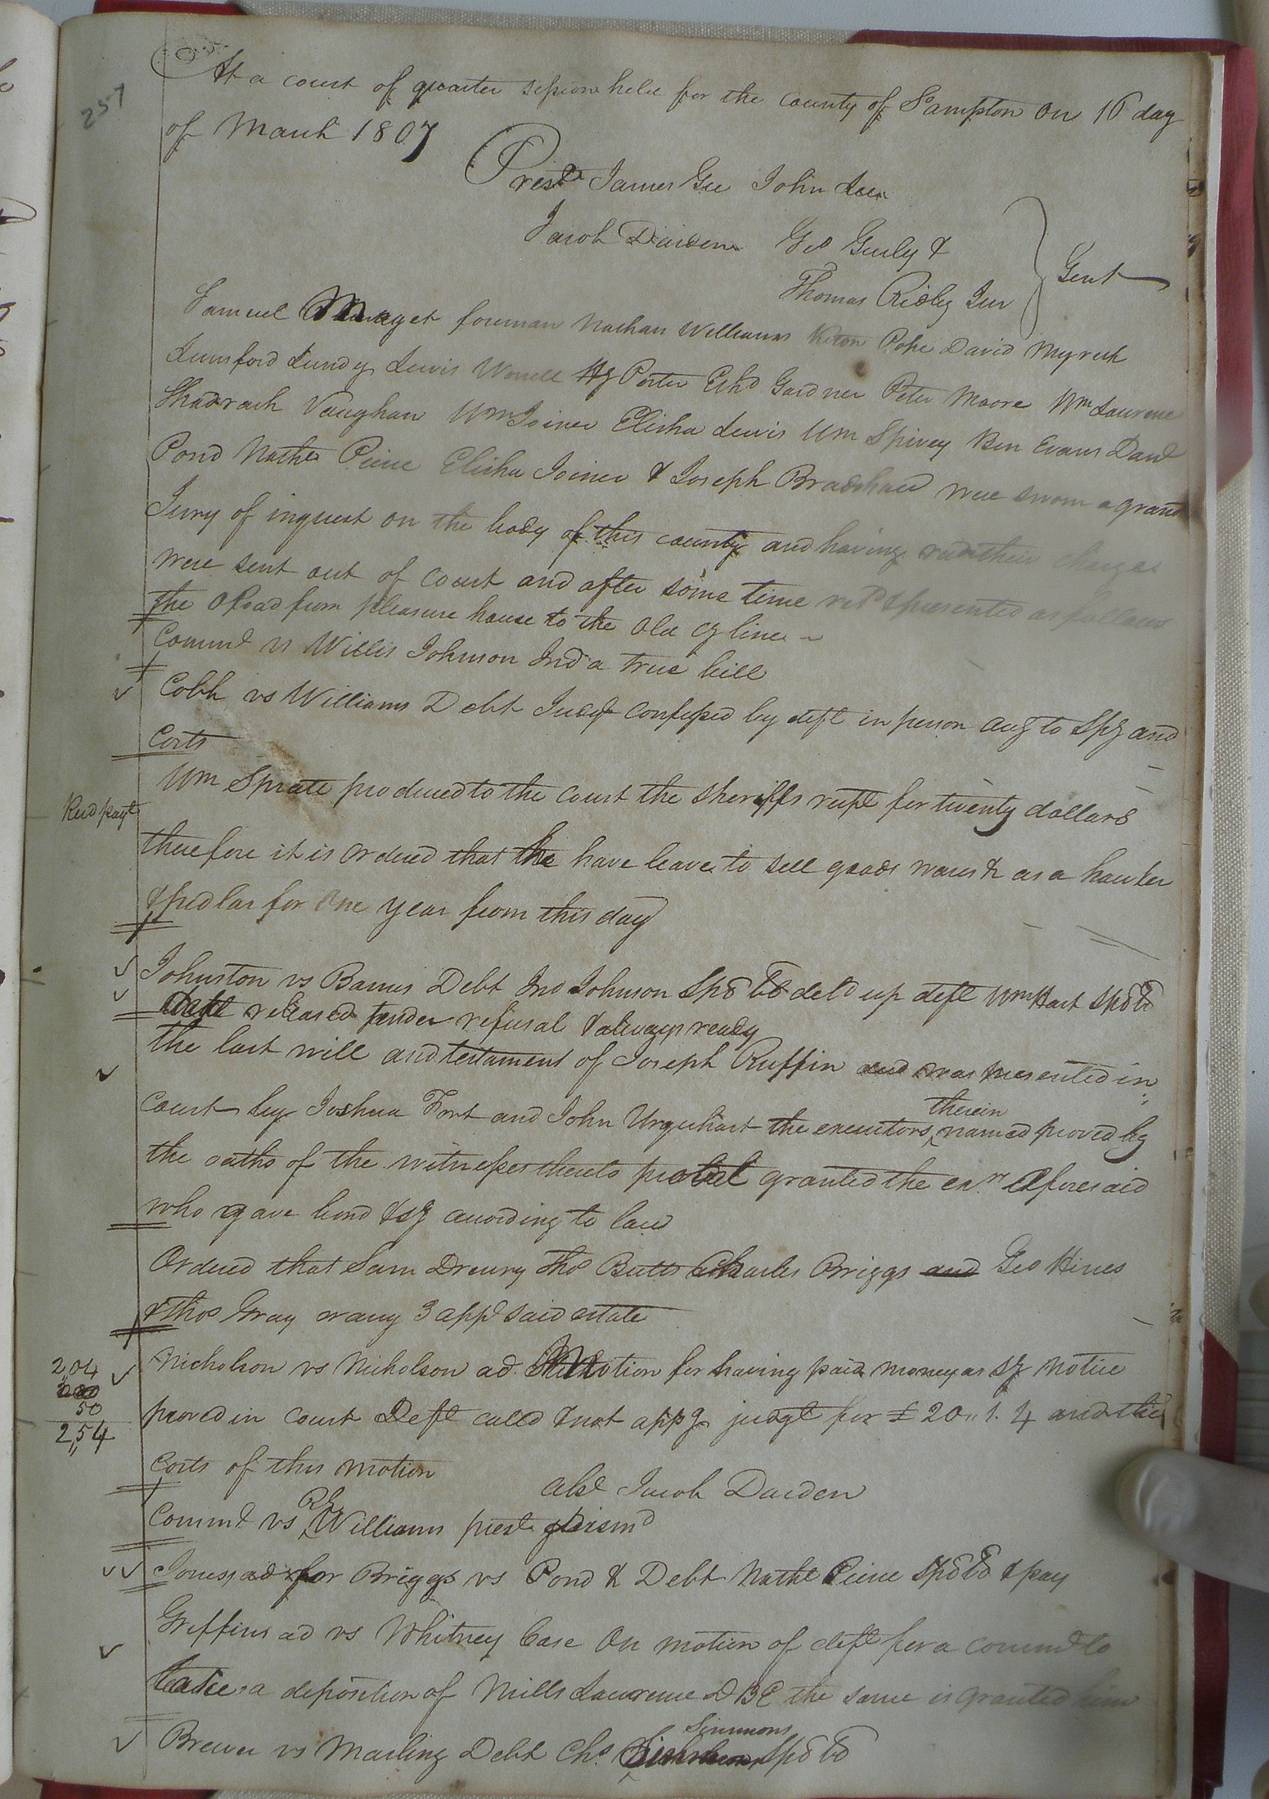 257
At a court of quarter session held for the county of S'ampton on 16 day
of March 1807
Prest James Gee John
Jacob Darden Geo Gurly &
Thomas Ridley Jun
Gent
Samuel Maget foreman Nathan Williams Pope David Myrick
Lunsford Lundy Lewis Worrell Porter Gardner Peter Moore Wm Laurence
Shadrach Vaughan Wm Joiner Elisha Lewis Wm Spivey Ben Evans Danl
Pond Nathl Peirce Elisha Joiner & Joseph Bradshaw were sworn a grand
Jury of inquest on the body of this county and having recd their charges
were sent out of court and after some time retd & presented as follows
The Road from pleasure house to the old line
Commth vs Willis Johnson Indt a true bill
Cobb vs Williams Debt Judgt confessed by deft in person and
Costs
Recd payt
Wm Spratt produced to the court the sheriffs rept for twenty dollars
therefore it is ordered that he have leave to sell goods wares & as a hawker
& pedlar for one year from this day
Johnston vs Barnes Debt Jno Johnson Spd bd deld up deft Wm Hart Spd bd
deft released tender refusal & always ready
The last will and testament of Joseph Ruffin was presented in
therein
court by Joshua Fort and John Urquhart the executors named proved by
the oaths of the witnesses thereto probat granted the exrs aforesaid
who gave bond & sy according to law
Ordered that Sam Drewry Thos Butts Charles Briggs and Geo Hines
& Thos Gray or any 3 appr said estate
2,04
50
2,54
Nicholson vs Nicholson ad Motion for having paid money as sy notice
proved in court Deft calld & not appg judgt for £20..1.4 and the
costs of this motion
abst Jacob Darden
Commth vs Williams prest dismd
Jones, ad for Briggs vs Pond & Debt Nathl Peirce Spd bd & pay
Griffins ad vs Whitney Case On motion of deft for a commn to
take a deposition of Mills Laurence D B E the same is granted him
Simmons
Brewer vs Marling Debt Chs Spd bd